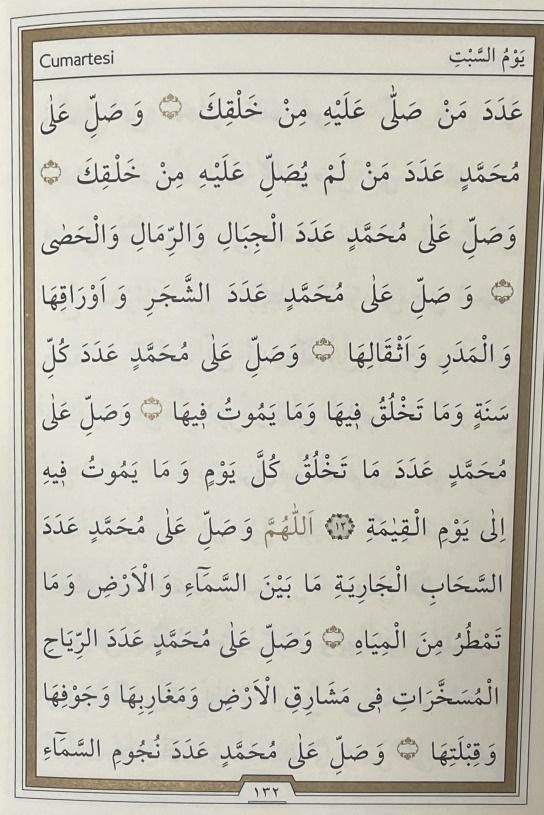 Cumartesi
يَوْمُ السَّبْتِ
عَدَدَ مَنْ صَلّٰى عَلَيْهِ مِنْ خَلْقِكَ وَ صَلِّ عَلٰى
مُحَمَّدٍ عَدَدَ مَنْ لَمْ يُصَلِّ عَلَيْهِ مِنْ خَلْقِكَ
وَصَلِّ عَلٰى مُحَمَّدٍ عَدَدَ الْجِبَالِ وَالرِّمَالِ وَالْحَصٰى
وَ صَلِّ عَلٰى مُحَمَّدٍ عَدَدَ الشَّجَرِ وَ اَوْرَاقِهَا
وَ الْمَدَرِ وَ اَثْقَالِهَا وَصَلِّ عَلٰى مُحَمَّدٍ عَدَدَ كُلِّ
سَنَةٍ وَمَا تَخْلُقُ فِيهَا وَمَا يَمُوتُ فِيهَا وَصَلِّ عَلٰى
مُحَمَّدٍ عَدَدَ مَا تَخْلُقُ كُلَّ يَوْمٍ وَ مَا يَمُوتُ فِيهِ
اِلٰى يَوْمِ الْقِيٰمَةِ ١٣ اَللّٰهُمَّ وَ صَلِّ عَلٰى مُحَمَّدٍ عَدَدَ
السَّحَابِ الْجَارِيَةِ مَا بَيْنَ السَّمَٓاءِ وَ الْاَرْضِ وَ مَا
تَمْطُرُ مِنَ الْمِيَاهِ وَصَلِّ عَلٰى مُحَمَّدٍ عَدَدَ الرِّيَاحِ
الْمُسَخَّرَاتِ فِى مَشَارِقِ الْاَرْضِ وَمَغَارِبِهَا وَجَوْفِهَا
وَ قِبْلَتِهَا وَ صَلِّ عَلٰى مُحَمَّدٍ عَدَدَ نُجُومِ السَّمَٓاءِ
١٣٢